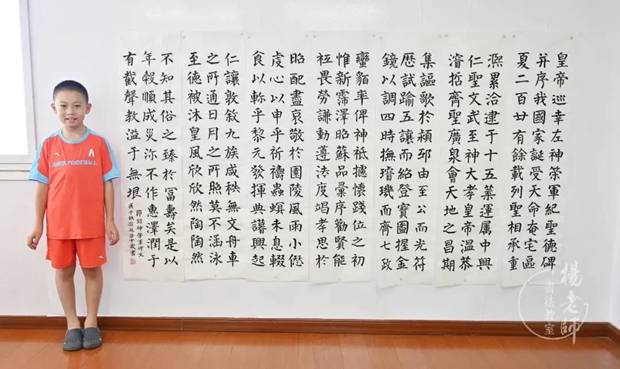 皇帝巡幸左神策軍紀聖德碑
并序我國家誕受天命奄宅區
夏二百廿有餘載列聖相承重
熙累洽逮于十五葉運屬中興
仁聖文武至神大孝皇帝溫恭
濬哲齊聖廣泉會天地之昌期
集謳歌於潁邸由至公而光符
歷試踰五讓而紹登寶圖握金
鏡以調四時撫璿璣而齊七政
蠻貊率俾神祗攄懷踐位之初
惟新霈澤昭蘇品彙序勸賢能
祗畏勞謙動遵法度竭孝思於
昭配盡哀敬於園陵風雨小愆
虔心以申乎祈禱蟲螟未息輟
食以軫乎黎元發揮典謨興起
仁讓敦敘九族咸秩無文舟車
之所通日月之所照莫不涵泳
至德被沐皇風欣欣然陶陶然
不知其俗之臻於富壽矣是以
年穀順成災沴不作惠澤潤于
有截聲教溢于無垠
楊老師
書法教室